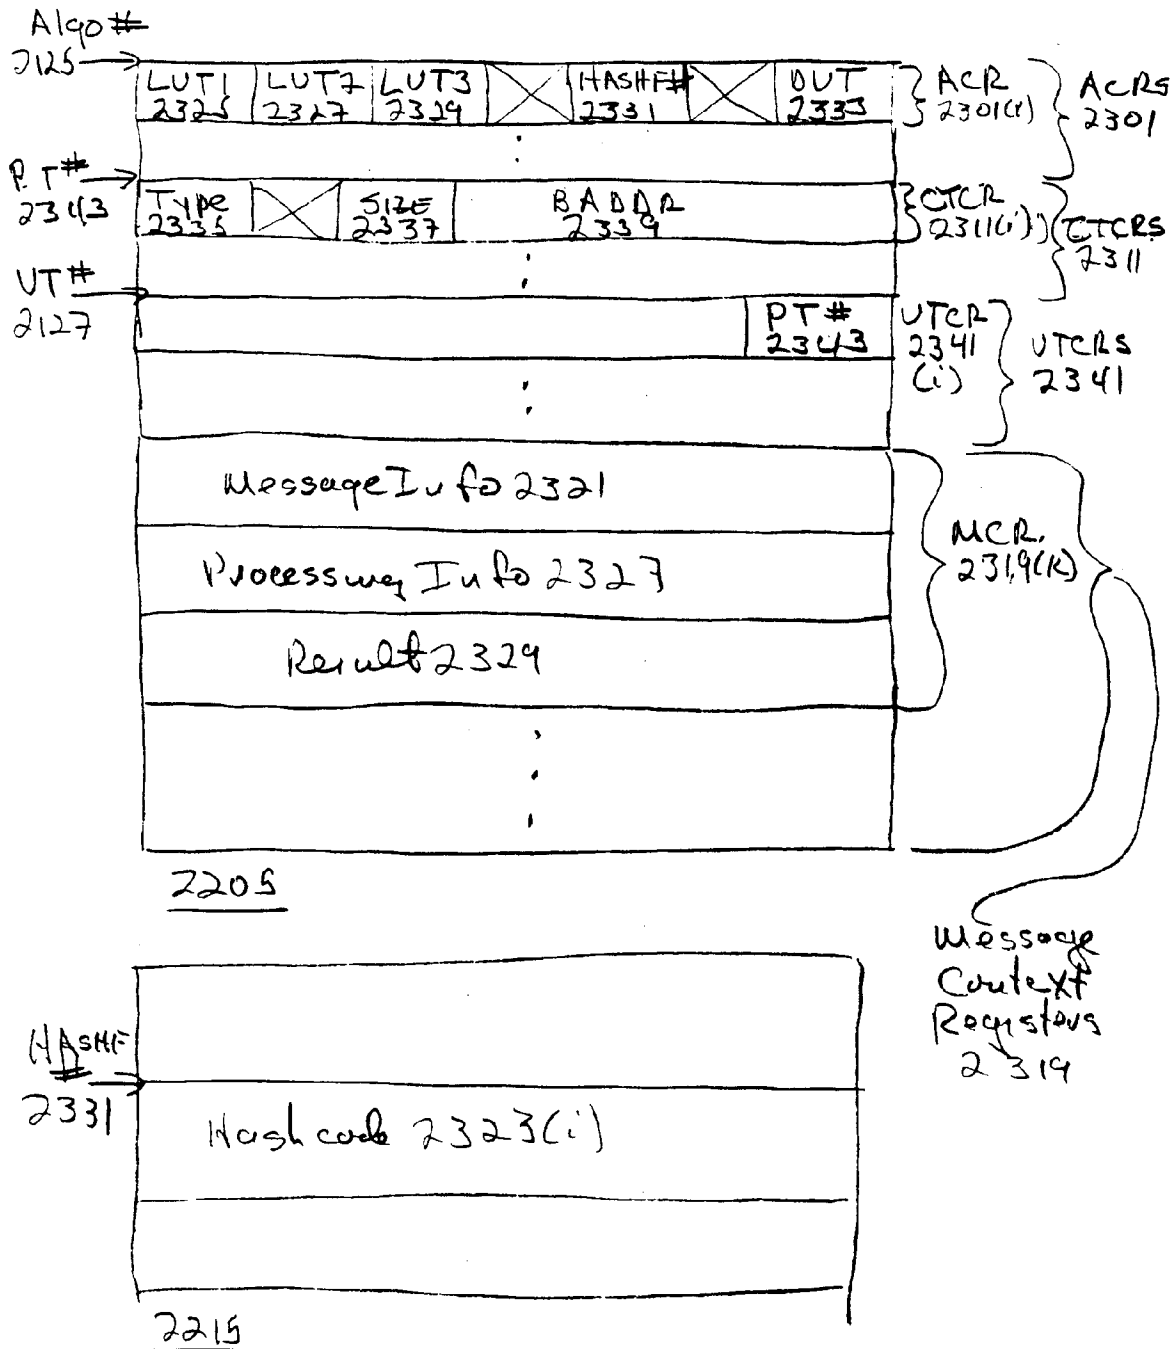 Algo #
2125
LUT1 LUT2 LUT3 HASHF# DUT
2325 2327 2329 2331 2333
ACR
2301(i)
ACRS
2301
P.T#
2343
Type SIZE BADDR
2335 2337 2339
CTCR
2311(i)
CTCRS
2311
VT#
2127
PT#
2343
VTCR
2341
(i)
VTCRS
2341
Message Info 2321
Processing Info 2327
Result 2329
MCR.
2319(k)
2205
Message
Context
Registers
2319
HASHF
#
2331
Hashcode 2323(i)
2215